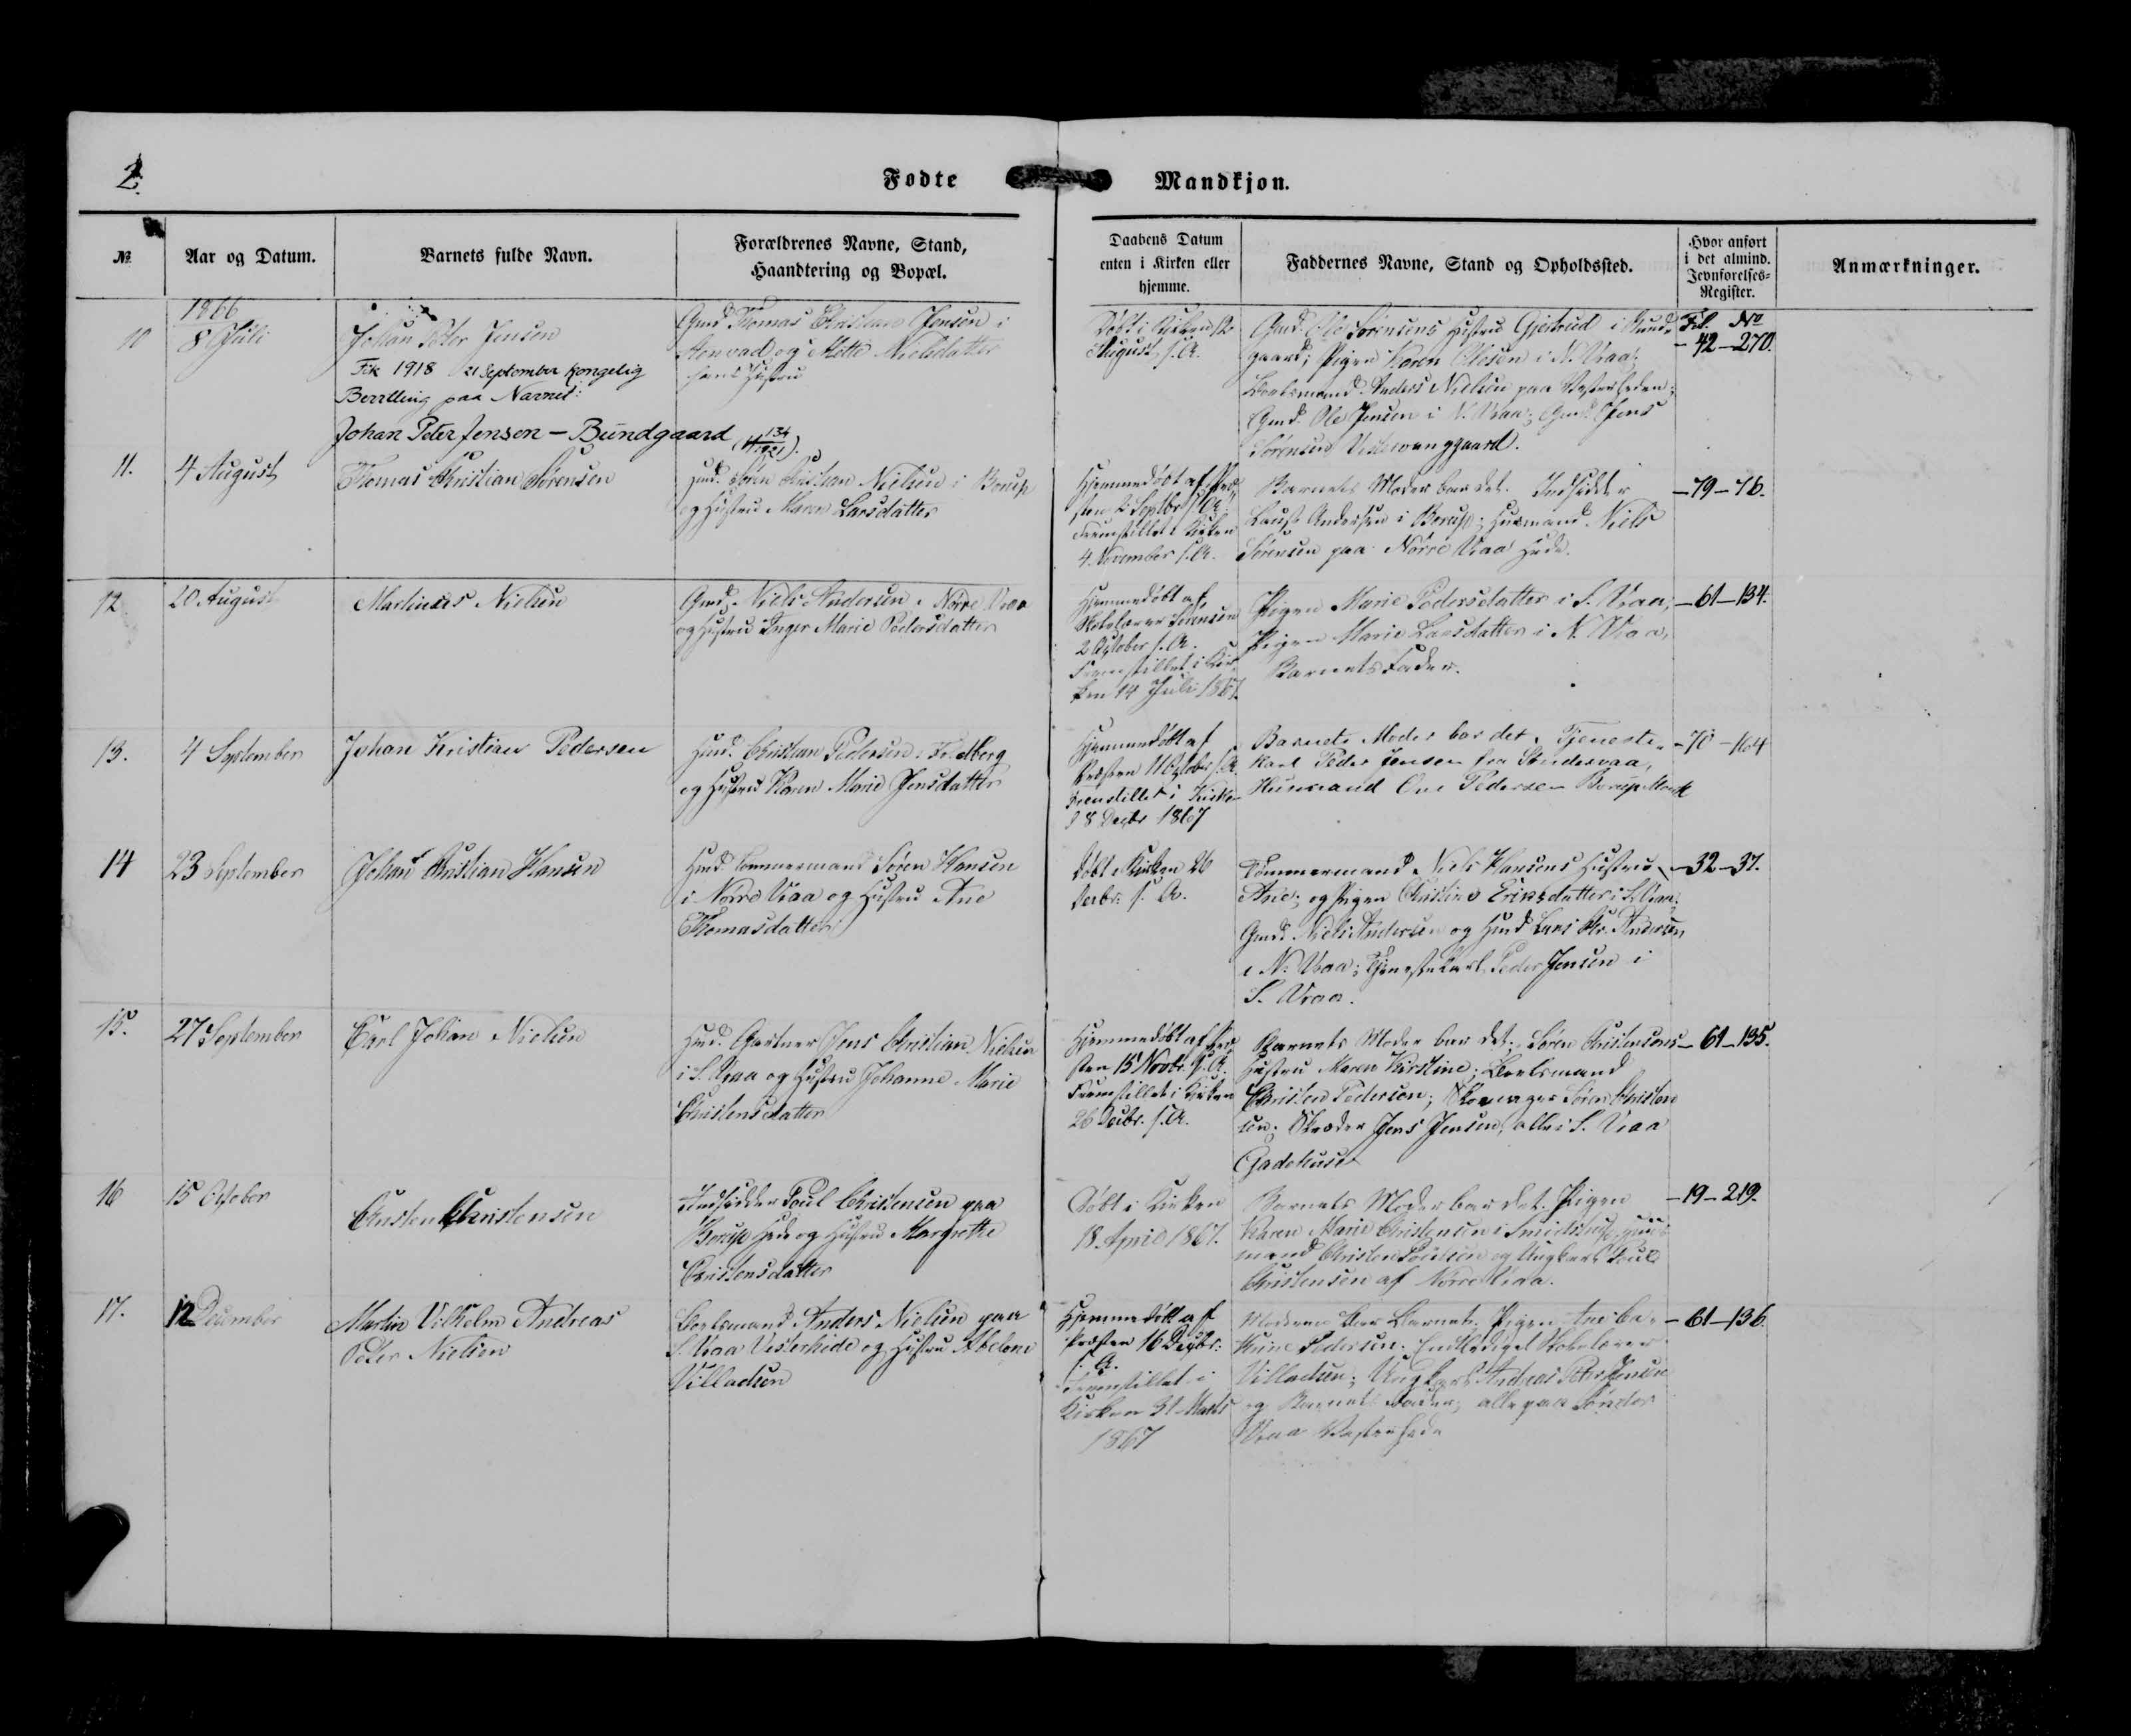 2.
Fodte Mandkjon.
№
Aar og Datum.
Barnets fulde Navn.
Forældrenes Navne, Stand,
Haandtering og Bopæl.
Daabens Datum
enten i Kirken eller
hjemme.
Faddernes Navne, Stand og Opholdssted.
Hvor anført
i det almind.
Jevnførelses-
Register.
Anmærkninger.
1866
10
8 Juli
Johan Peter Jensen
Fik 1918 21 September kongelig
Bevilling paa Navnet:
Johan Peter Jensen - Bundgaard
Gmd. Thomas Christian Jensen i
Stenvad og Mette Nielsdatter
hans Hustru
Døbt i Kirken 12
August s. A.
Gmd. Ole Sørensens Hustru Gjertrud i Bund-
gaard; Pigen Karen Olesen i N. Vraa;
Boelsmand Anders Nielsen paa Vesterheden;
Gmd. Ole Jensen i N. Vraa; Gmd. Jens
Sørensen Vestervanggaard.
Fol. No
- 42 - 270.
11.
4 August
Thomas Christian Sørensen
Hmd. Søren Christian Nielsen i Borup
og Hustru Maren Larsdatter
Hjemmedøbt af Præ-
sten 2 Septbr. s. A.
Fremstillet i Kirken
4. November s. A.
Barnets Moder bar det. Indsidder
Laust Andersen i Borup; Husmand Niels
Sørensen paa Nørre Vraa Hede.
- 79 - 76.
12.
20 August
Martinus Nielsen
Gmd. Niels Andersen i Nørre Vraa
og Hustru Inger Marie Pedersdatter
Hjemmedøbt af
Skolelærer Sørensen
2 October s. A.
Fremstillet i Kir-
ken 14 Juli 1867.
Pigen Marie Pedersdatter i S. Vraa;
Pigen Marie Larsdatter i N. Vraa,
Barnets Fader.
- 61 - 134.
13.
4 September
Johan Kristian Pedersen
Hmd. Christian Pedersen i
og Hustru Karen Marie Jensdatter
Hjemmedøbt af
Præsten 11 October s. A.
Fremstillet i Kirken
d 8 Decbr 1867
Barnets Moder bar det. Tjeneste-
karl Peder Jensen fra Søndervraa,
Husmand Ove Pedersen Borup Mark
- 70 - 164
14
23 September
Johan Christian Hansen
Hmd. Tømmermand Søren Hansen
i Nørre Vraa og Hustru Ane
Thomasdatter
Døbt i Kirken 26
Decbr. s. A.
Tømmermand Niels Hansens Hustru
Ane; og Pigen Christine Eriksdatter i S. Vraa;
Gmd. Niels Andersen og Hmd Lars Chr. Andersen
i N. Vraa; Tjenestekarl Peder Jensen i
S. Vraa.
- 32 - 37.
15.
27 September
Carl Johan Nielsen
Hmd. Gartner Jens Christian Nielsen
i S. Vraa og Hustru Johanne Marie
Christensdatter
Hjemmedøbt af Præ-
sten 15 Novbr. s. A.
Fremstillet i Kirken
26 Decbr. s. A.
Barnets Moder bar det; Søren Christensens
Hustru Maren Kirstine; Boelsmand
Christen Pedersen; Skomager Søren Christen-
sen; Skræder Jens Jensen, alle i S. Vraa
Gadehuse
- 61 - 135.
16
15 October
Christen Christensen
Indsidder Poul Christensen paa
Borup Hede og Hustru Margrethe
Christensdatter
Døbt i Kirken
18. April 1867.
Barnets Moder bar det. Pigen
Karen Marie Christensen i
mand Christen Poulsen og Ungkarl Poul
Christensen af Nørre Vraa.
- 19 - 219.
17.
12 December
Martin Vilhelm Andreas
Peter Nielsen
Boelsmand Anders Nielsen paa
S. Vraa Vesterhede og Hustru Abelone
Villadsen
Hjemmedøbt af
Præsten 16 Decbr.
s. A.
Fremstillet i
Kirken 31 Marts
1867
Moderen bar Barnet. Pigen Ane Ca-
thrine Pedersen. Entlediget Skolelærer
Villadsen; Ungkarl Andreas Peter Jensen
og Barnets Fader; alle paa Sønder
Vraa Vesterhede
- 61 - 136.